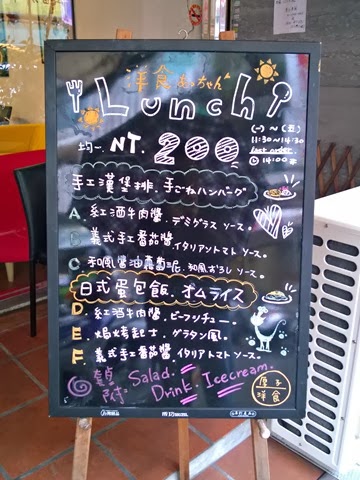 洋食
Lunch
均一 NT. 200
(一)~(五)
11:30~14:30
last order
14:00
手工漢堡排. 手ごねハンバーグ
A. 紅酒牛肉醬. デミグラス ソース.
義式手工蕃茄醬 イタリアントマト ソース.
C 和風醬油蘿蔔泥. 和風おろし ソース.
日式蛋包飯. オムライス
D. 紅酒牛肉醬. ビーフシチュー.
E. 焗烤起士. グラタン風.
F. 義式手工蕃茄醬 イタリアトマト ソース.
附 Salad.
Drink. Icecream.
洋食